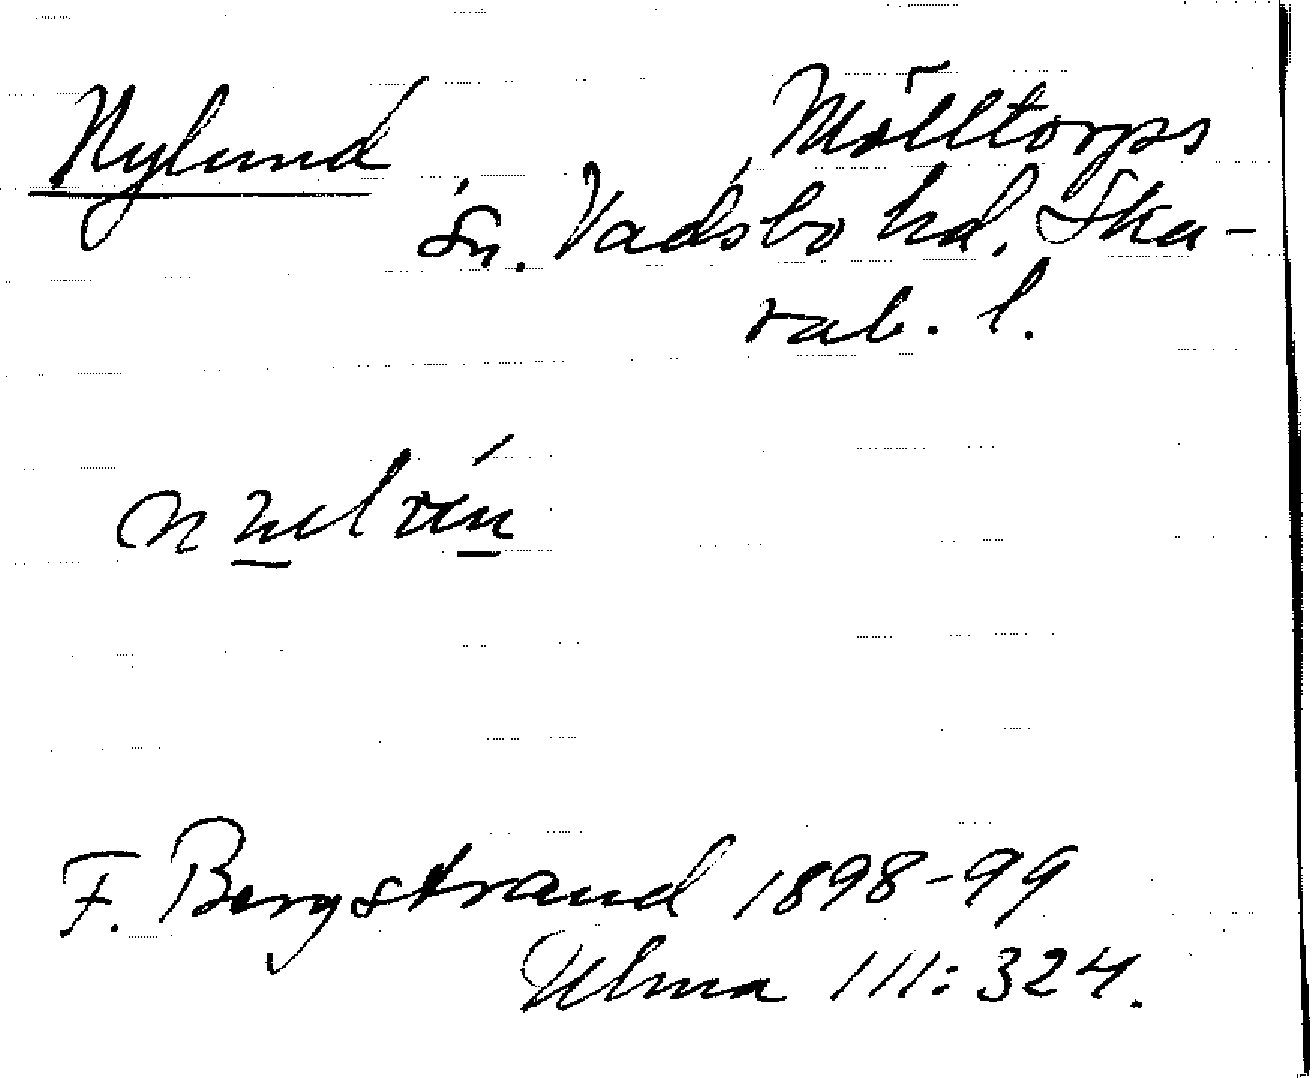 Nylund Mölltorps
sn. Vadsbo hd. Ska-
rab. l.
F. Bergstrand 1898-99
Ulma 111:324.